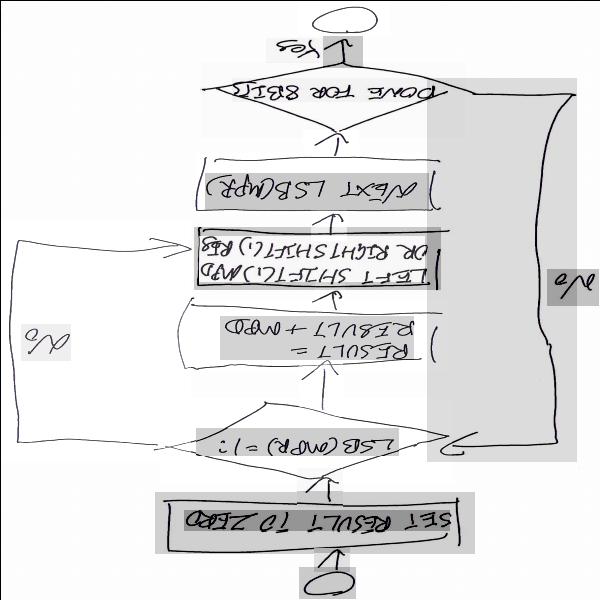 SET RESULT TO ZERO
LSB(MPR) = 1?
No
RESULT =
RESULT + MPD
LEFT SHIFT(1) MPD
OR RIGHTSHIFT(1) REG
NEXT LSB(MPR)
DONE FOR 8BITS
No
Yes